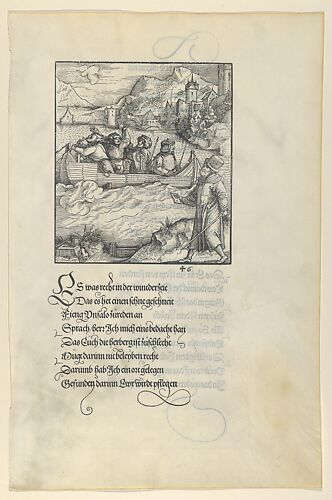 46
ES was recht in der winderzeit
Das es het ainen schne geschneit
Fieng Unfalo zureden an
Sprach herr Ich mich eins bedacht han
Das Euch die herberg ist zuschlecht
Mugt darinn nit beleyben recht
Darumb hab Ich ein ort gelegen
Gefunden darinn Ewr wirdt pflegen